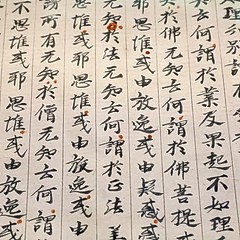 於云何謂於業及果起不如理
於佛无知云何謂於佛菩提
思惟或由放逸或由疑惑
无知於法无知云何謂於正法善
思惟或邪思惟或由放逸或由
謂所有无知於僧无知云何謂
不思惟或邪思惟或由放逸或